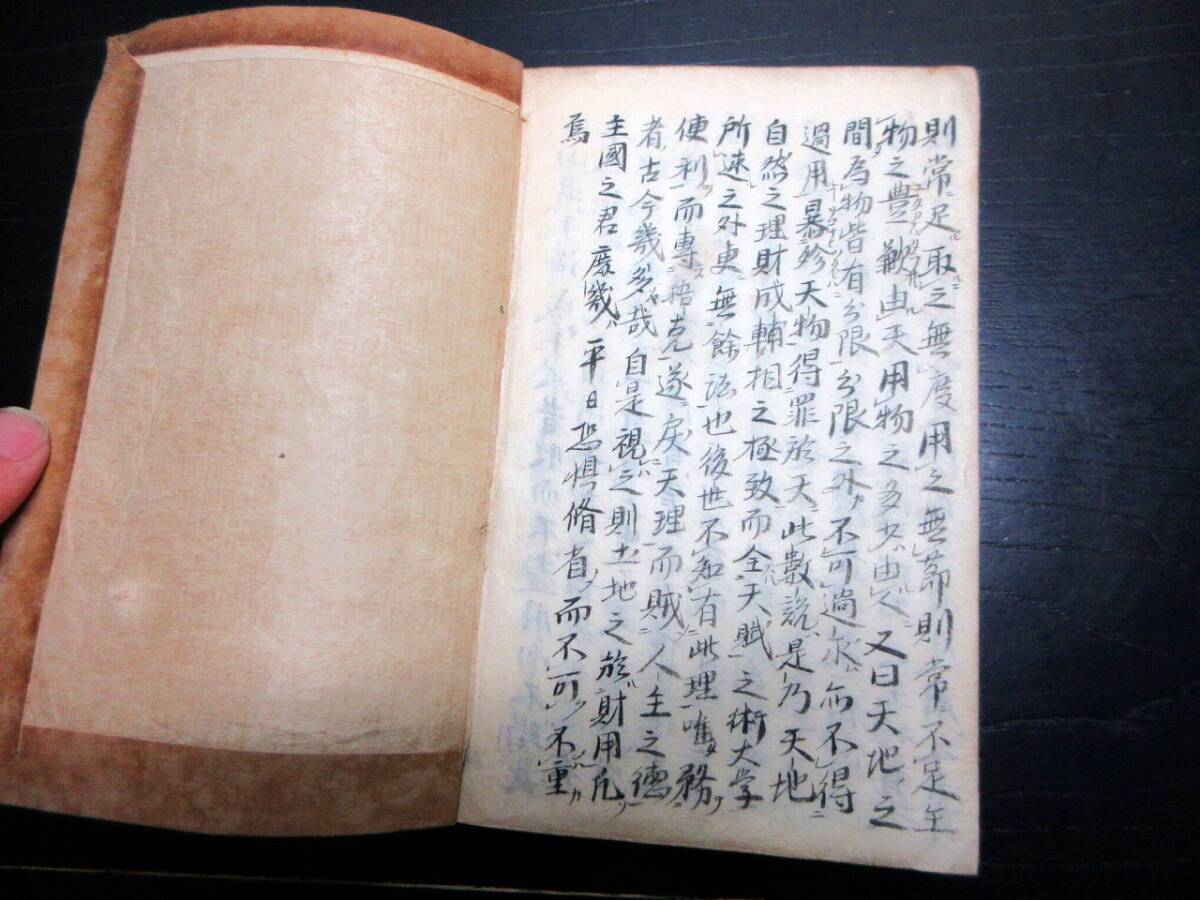 則常足取之無度用之無節則常不足生
物之豊歉由天用物之多少由人又曰天地之
間為物皆有分限分限之外不可過求亦不得
過用暴殄天物得罪於天此數説是乃天地
自然之理財成輔相之極致而全天賦之術大学
所述之外更無餘法也後世不知有此理唯務
便利而專掊克遂戻天理而賊人主之德
者古今幾多哉自是視之則土地之於財用凡
主國之君庶幾平日恐惧脩省而不可不重
焉